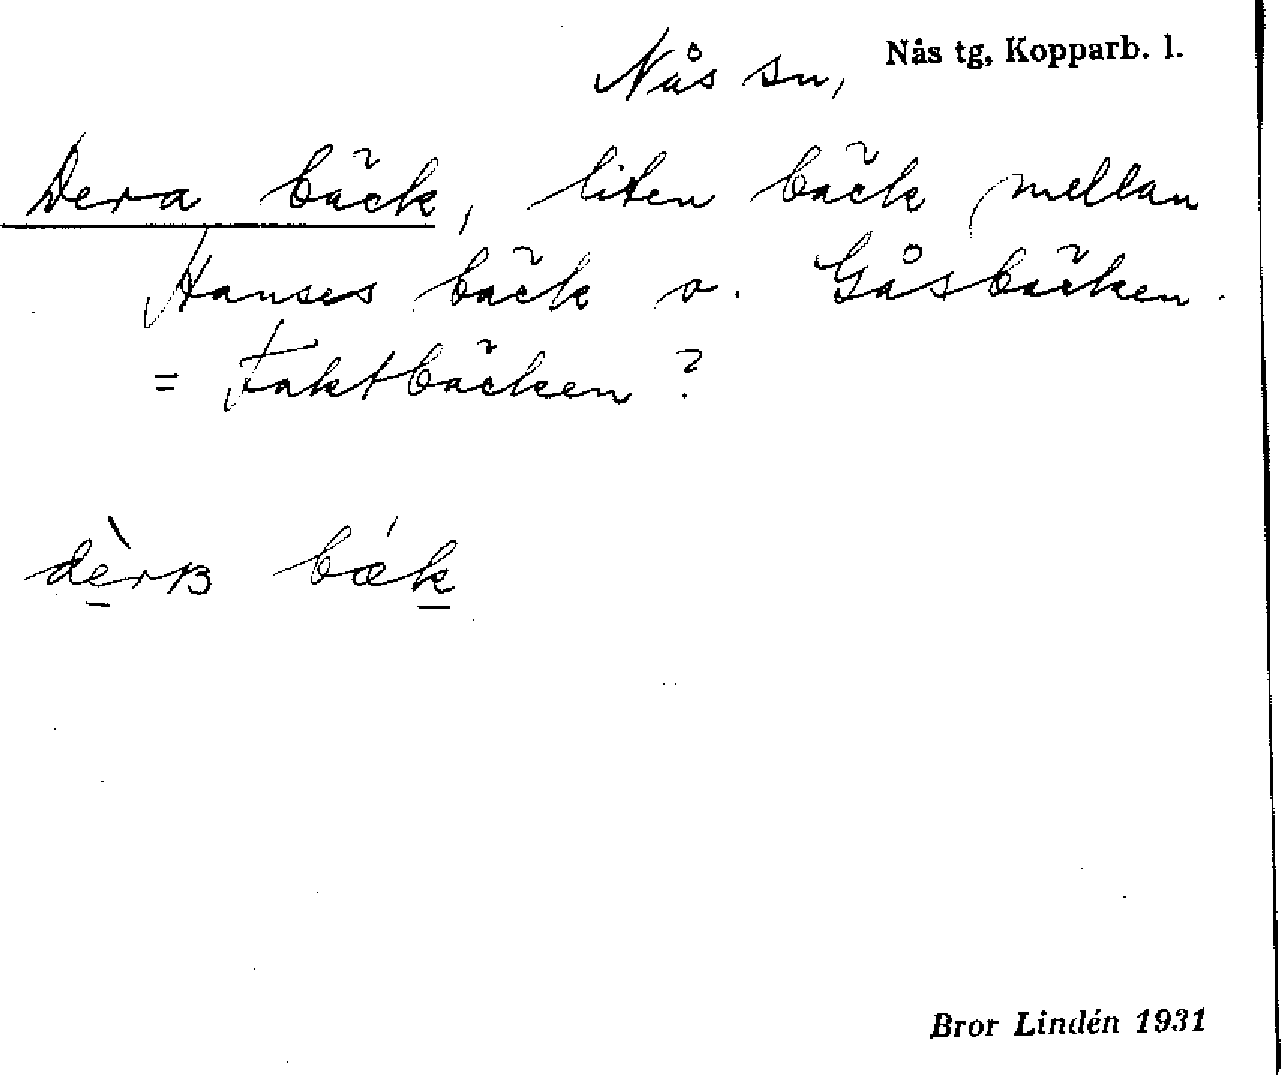 Nås sn, Nås tg, Kopparb. l.
Dera bäck, liten bäck mellan
Hanses bäck o. Gåsbäcken.
= Faktbäcken?
dèrɐ bǽk
Bror Lindén 1931